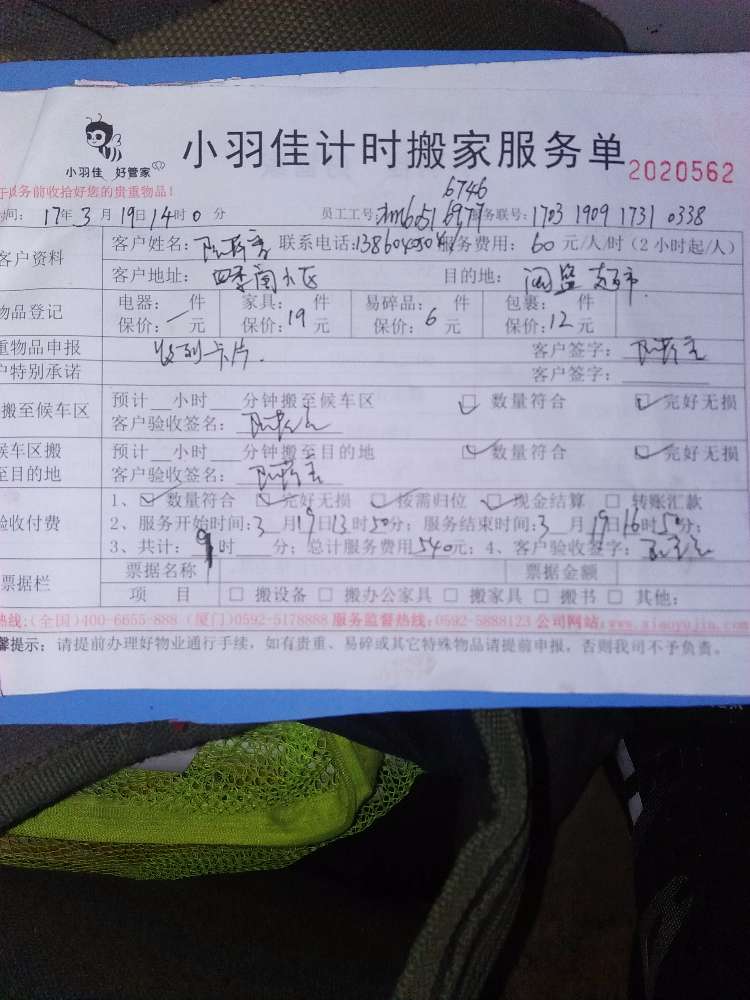 小羽佳 好管家
小羽佳计时搬家服务单
2020562
务前收拾好您的贵重物品!
6746
间: 17年 3 月 19日 14时 0 分 员工工号: 6051 6977 务联号: 1703 1909 1731 0338
客户资料 客户姓名: 联系电话: 服务费用: 60 元/人/时 (2小时起/人)
客户地址: 四季 小区 目的地: 闽盛超市
物品登记 电器: 件 家具: 件 易碎品: 件 包裹: 件
保价: 元 保价: 19 元 保价: 6 元 保价: 12 元
重物品申报 收到卡片. 客户签字:
户特别承诺 客户签字:
搬至候车区 预计 小时 分钟搬至候车区 数量符合 完好无损
客户验收签名:
候车区搬 预计 小时 分钟搬至目的地 数量符合 完好无损
至目的地 客户验收签名:
验收付费 1、 数量符合 完好无损 按需归位 现金结算 转账汇款
2、服务开始时间: 3 月 19日 13 时 50分; 服务结束时间: 3 月 19日 16时 50分;
3、共计: 9 时 分; 总计服务费用 540元; 4、客户验收签字:
票据栏 票据名称 票据金额
项 目 搬设备 搬办公家具 搬家具 搬书 其他:
热线:(全国)400-6655-888 (厦门)0592-5178888 服务监督热线:0592-5888123 公司网站:www.xiaoyujia.com
馨提示: 请提前办理好物业通行手续, 如有贵重、易碎或其它特殊物品请提前申报, 否则我司不予负责。